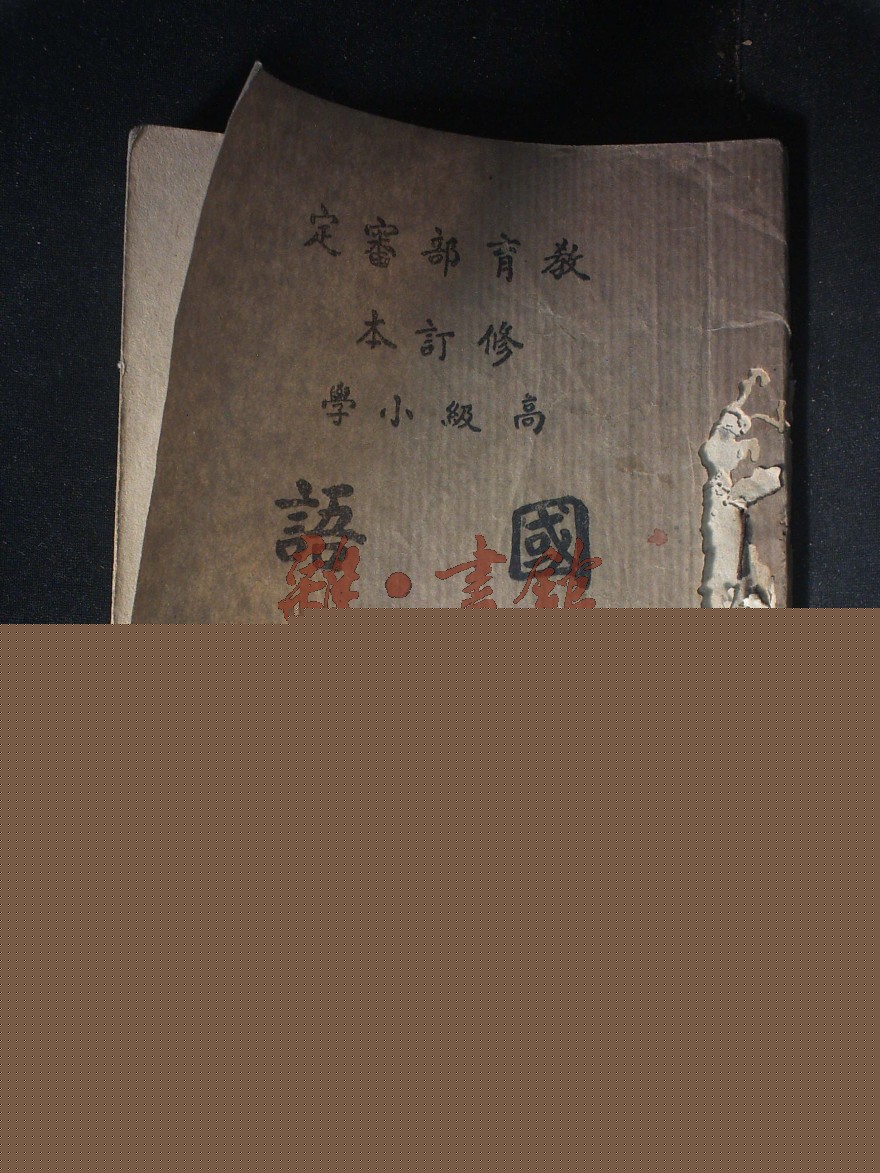 教育部審定
修訂本
高級小學
國語
雜●書館